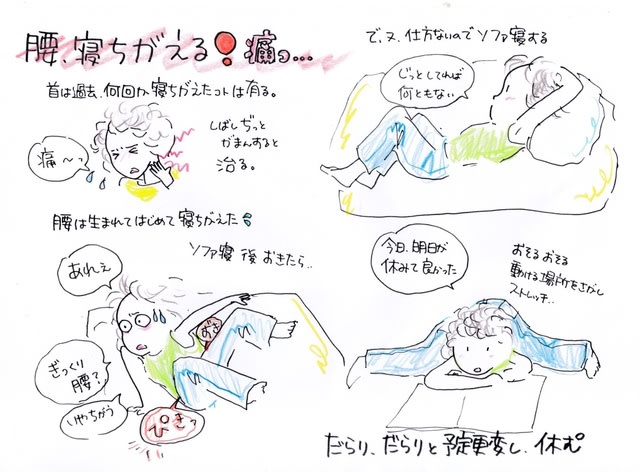 腰、寝ちがえる!痛っ...
首は過去、何回か寝ちがえたコトは有る。
痛〜っ
しばしぢっと
がまんすると
治る。
腰は生まれてはじめて寝ちがえた
ソファ寝後おきたら..
あれぇ
おき
ぎっくり
腰?
いやちがう
ぴきっ
で、又、仕方ないのでソファ寝する
じっとしてれば
何ともない
今日、明日が
休みで良かった
おそるおそる
動ける場所をさがし
ストレッチ..
だらり、だらりと予定変更し、休む